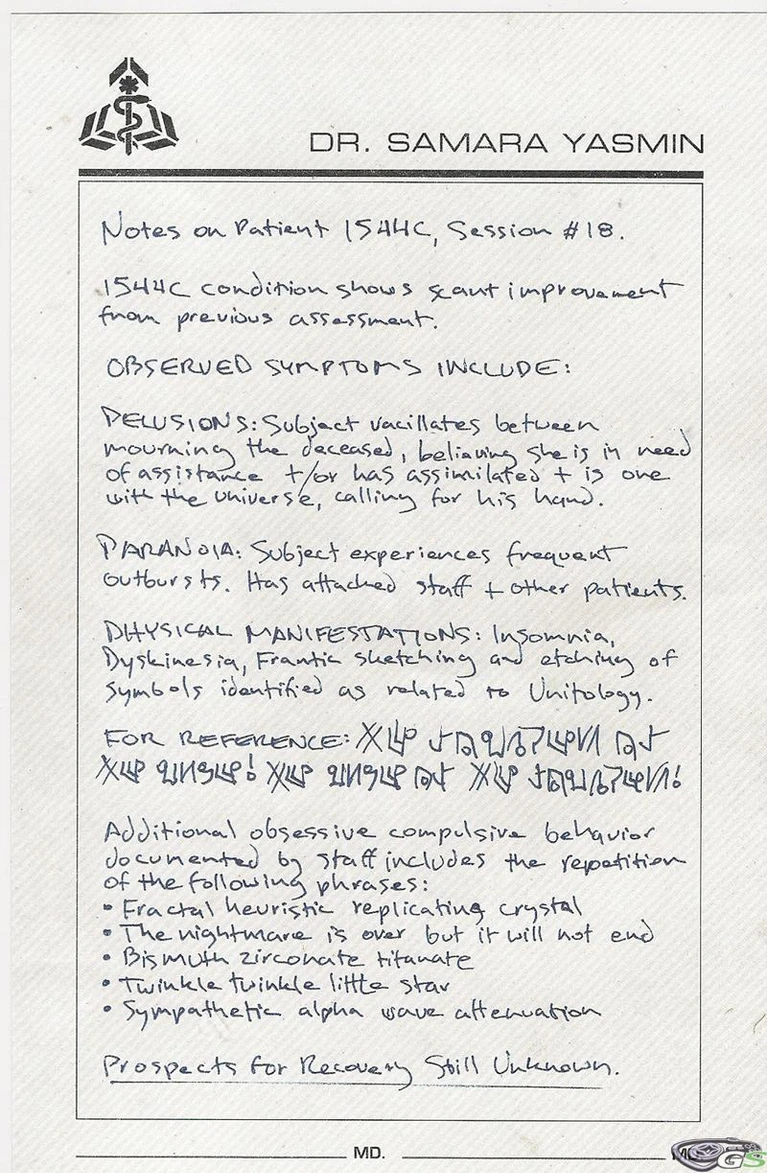 DR. SAMARA YASMIN
Notes on Patient 1544C, Session #18.
1544C condition shows scant improvement
from previous assessment.
OBSERVED SYMPTOMS INCLUDE:
DELUSIONS: Subject vacillates between
mourning the deceased, believing she is in need
of assistance +/or has assimilated + is one
with the universe, calling for his hand.
PARANOIA: Subject experiences frequent
outbursts. Has attacked staff + other patients.
PHYSICAL MANIFESTATIONS: Insomnia,
Dyskinesia, Frantic sketching and etching of
symbols identified as related to Unitology.
FOR REFERENCE:
Additional obsessive compulsive behavior
documented by staff includes the repetition
of the following phrases:
• Fractal heuristic replicating crystal
• The nightmare is over but it will not end
• Bismuth zirconate titanate
• Twinkle twinkle little star
• Sympathetic alpha wave attenuation
Prospects for Recovery Still Unknown.
MD.
GS